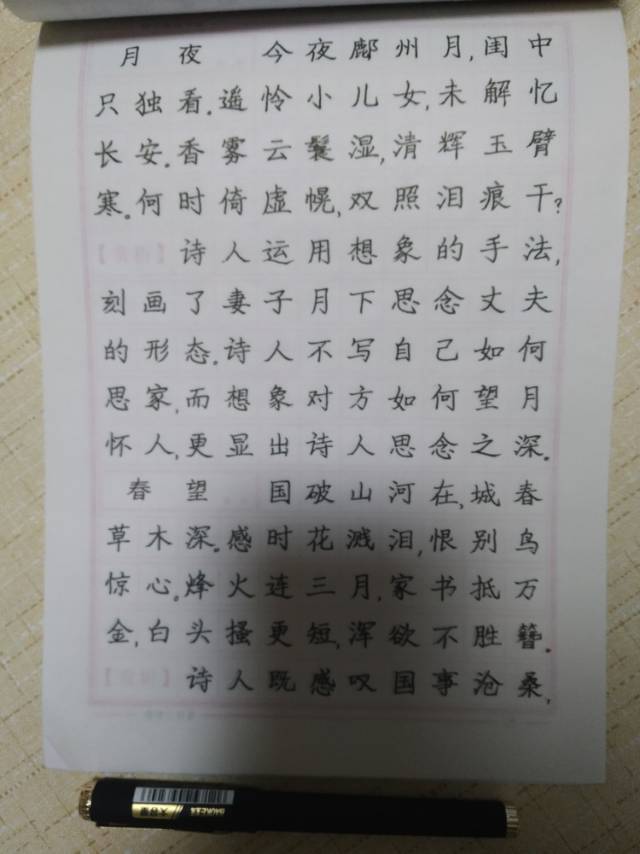 月夜 今夜鄜州月,闺中
只独看。遥怜小儿女,未解忆
长安。香雾云鬟湿,清辉玉臂
寒。何时倚虚幌,双照泪痕干?
诗人运用想象的手法,
刻画了妻子月下思念丈夫
的形态。诗人不写自己如何
思家,而想象对方如何望月
怀人,更显出诗人思念之深。
春望 国破山河在,城春
草木深。感时花溅泪,恨别鸟
惊心。烽火连三月,家书抵万
金,白头搔更短,浑欲不胜簪。
诗人既感叹国事沧桑,
大容量